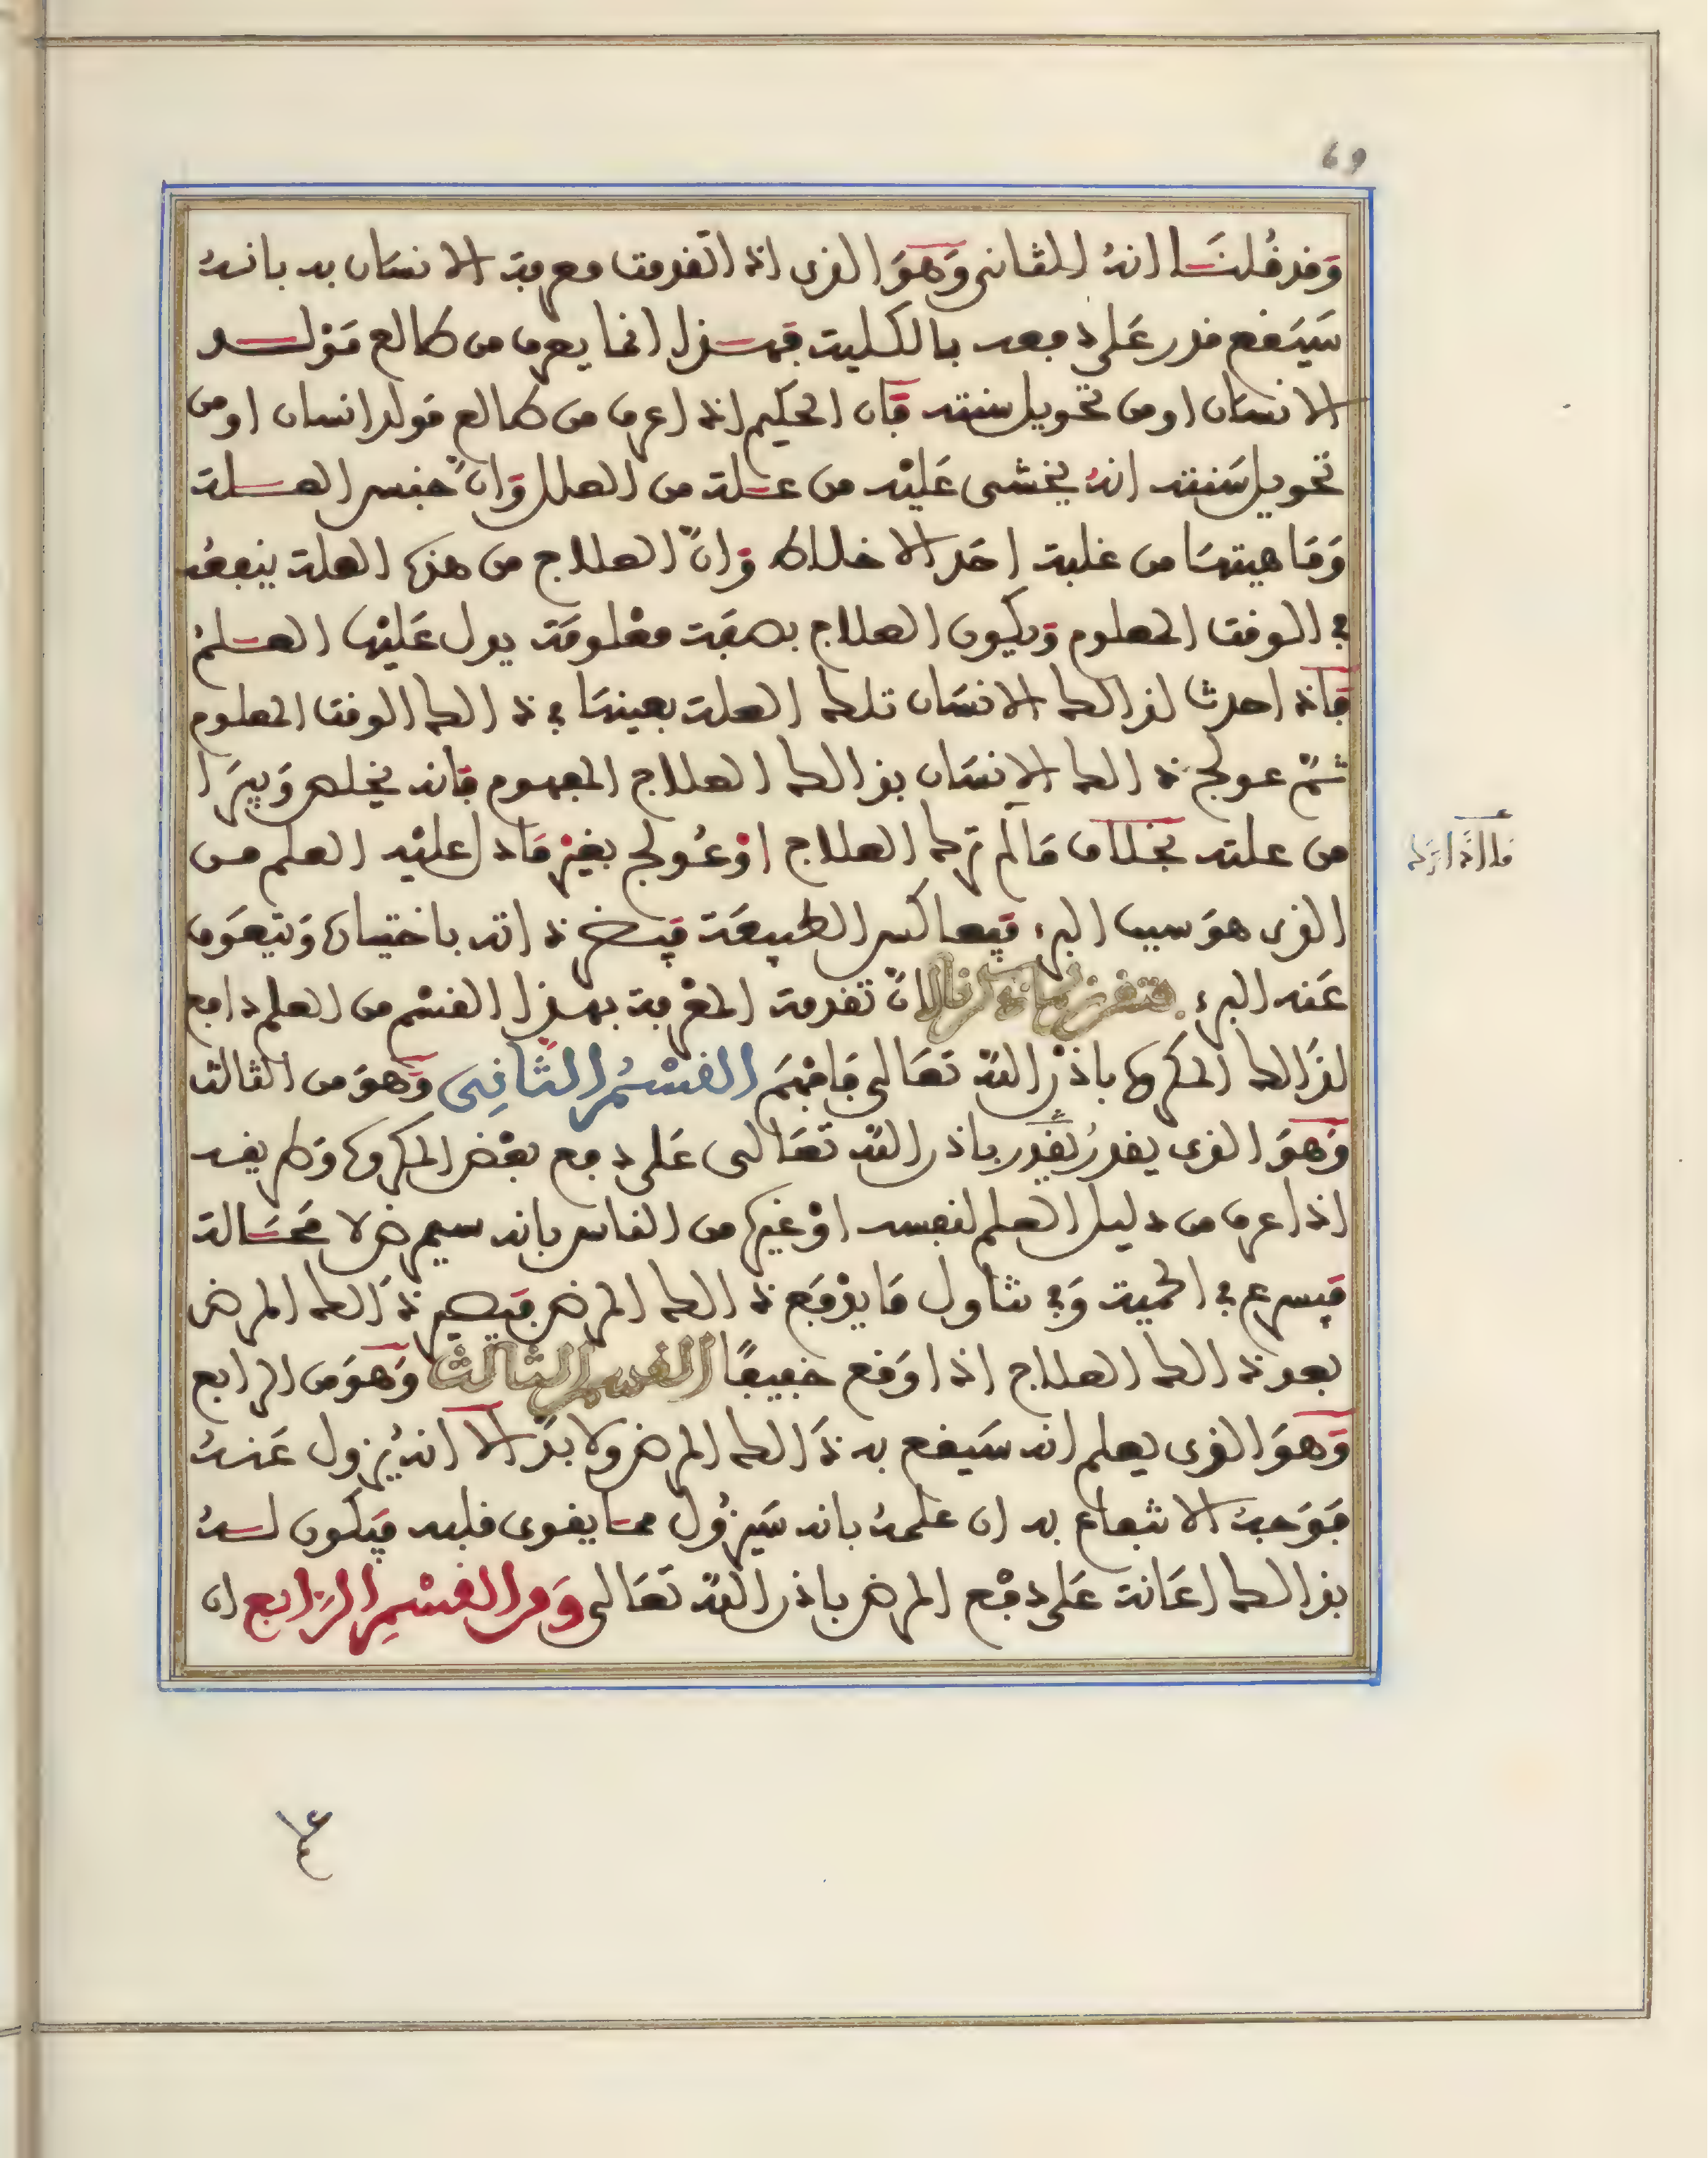 69
وَقد قُلنَا انهُ الثاني وَهوَ الذي اذا تقدمت معرفة الانسان به بانهُ
سَيَقع قدر عَلى دفعه بالكلية فهذا انما يعرف من طالع مَوْلد
الانسَان او من تحويل سنته فَان الحكيم اذا عرف من طالع مَولد انسان او من
تحويل سَنته انهُ يخشى عَليْه من علة من العلل وَانّ جنس العلة
وَمَاهيتهَا من غلبة احَد الاخلاط وَانّ العلاج من هذه العلة ينفعُه
في الوقت المعلوم وَيكون العلاج بصفَة معْلومَة يدل عَليْها العلمُ
فَاذا حدث لذالك الانسَان تلك العلة بعينهَا في ذالك الوقت المعلوم
ثمّ عولج ذالك الانسَان بذالك العلاج المفهوم فَانه يخلص وَيبرَا
من علته بخلاف مَا لَم ترك العلاج اوْ عُولج بغيْر مَا دل عليْه العلم من
قال اذا ترك
الذي هوَ سبب البرء فيَعاكس الطبيعَة فيسخر ذاته باختياره وَيتعَوق
عَنه البرء انّ تقدمة المعْرفة بهذا القسْم من العلم دافع
لذَالك المكروه باذْن اللّه تعَالى فَافهَم القسْمُ الثَّانِي وَهوَ من الثالث
وَهوَ الذي يقدرُ باذن اللّه تعَالى عَلى دفع بعْض المكروه وَطريقه
اذا عرف من دليل العلم لنفسه اوْ غيره من الناس بانه سيمرض لا مَحَالة
فيسرع في الحمية وَفي تناول مَا يدْفَع ذالك المرض فيَصير ذَالك المرض
بعد ذالك العلاج اذا وَقع خفيفًا القسم الثالث وَهوَ من الرابع
وَهوَ الذي يعلم انه سَيقع به ذَالك المرض ولا بدّ الا انهُ يزول عَنهُ
فوَجهُ الانتفاع به ان علمهُ بانه سَيزُول ممَا يقوى قلبه فيَكون لهُ
بذالك اعَانة عَلى دفْع المرض باذن اللّه تعَالى وَمن القسْمِ الرَّابع ان